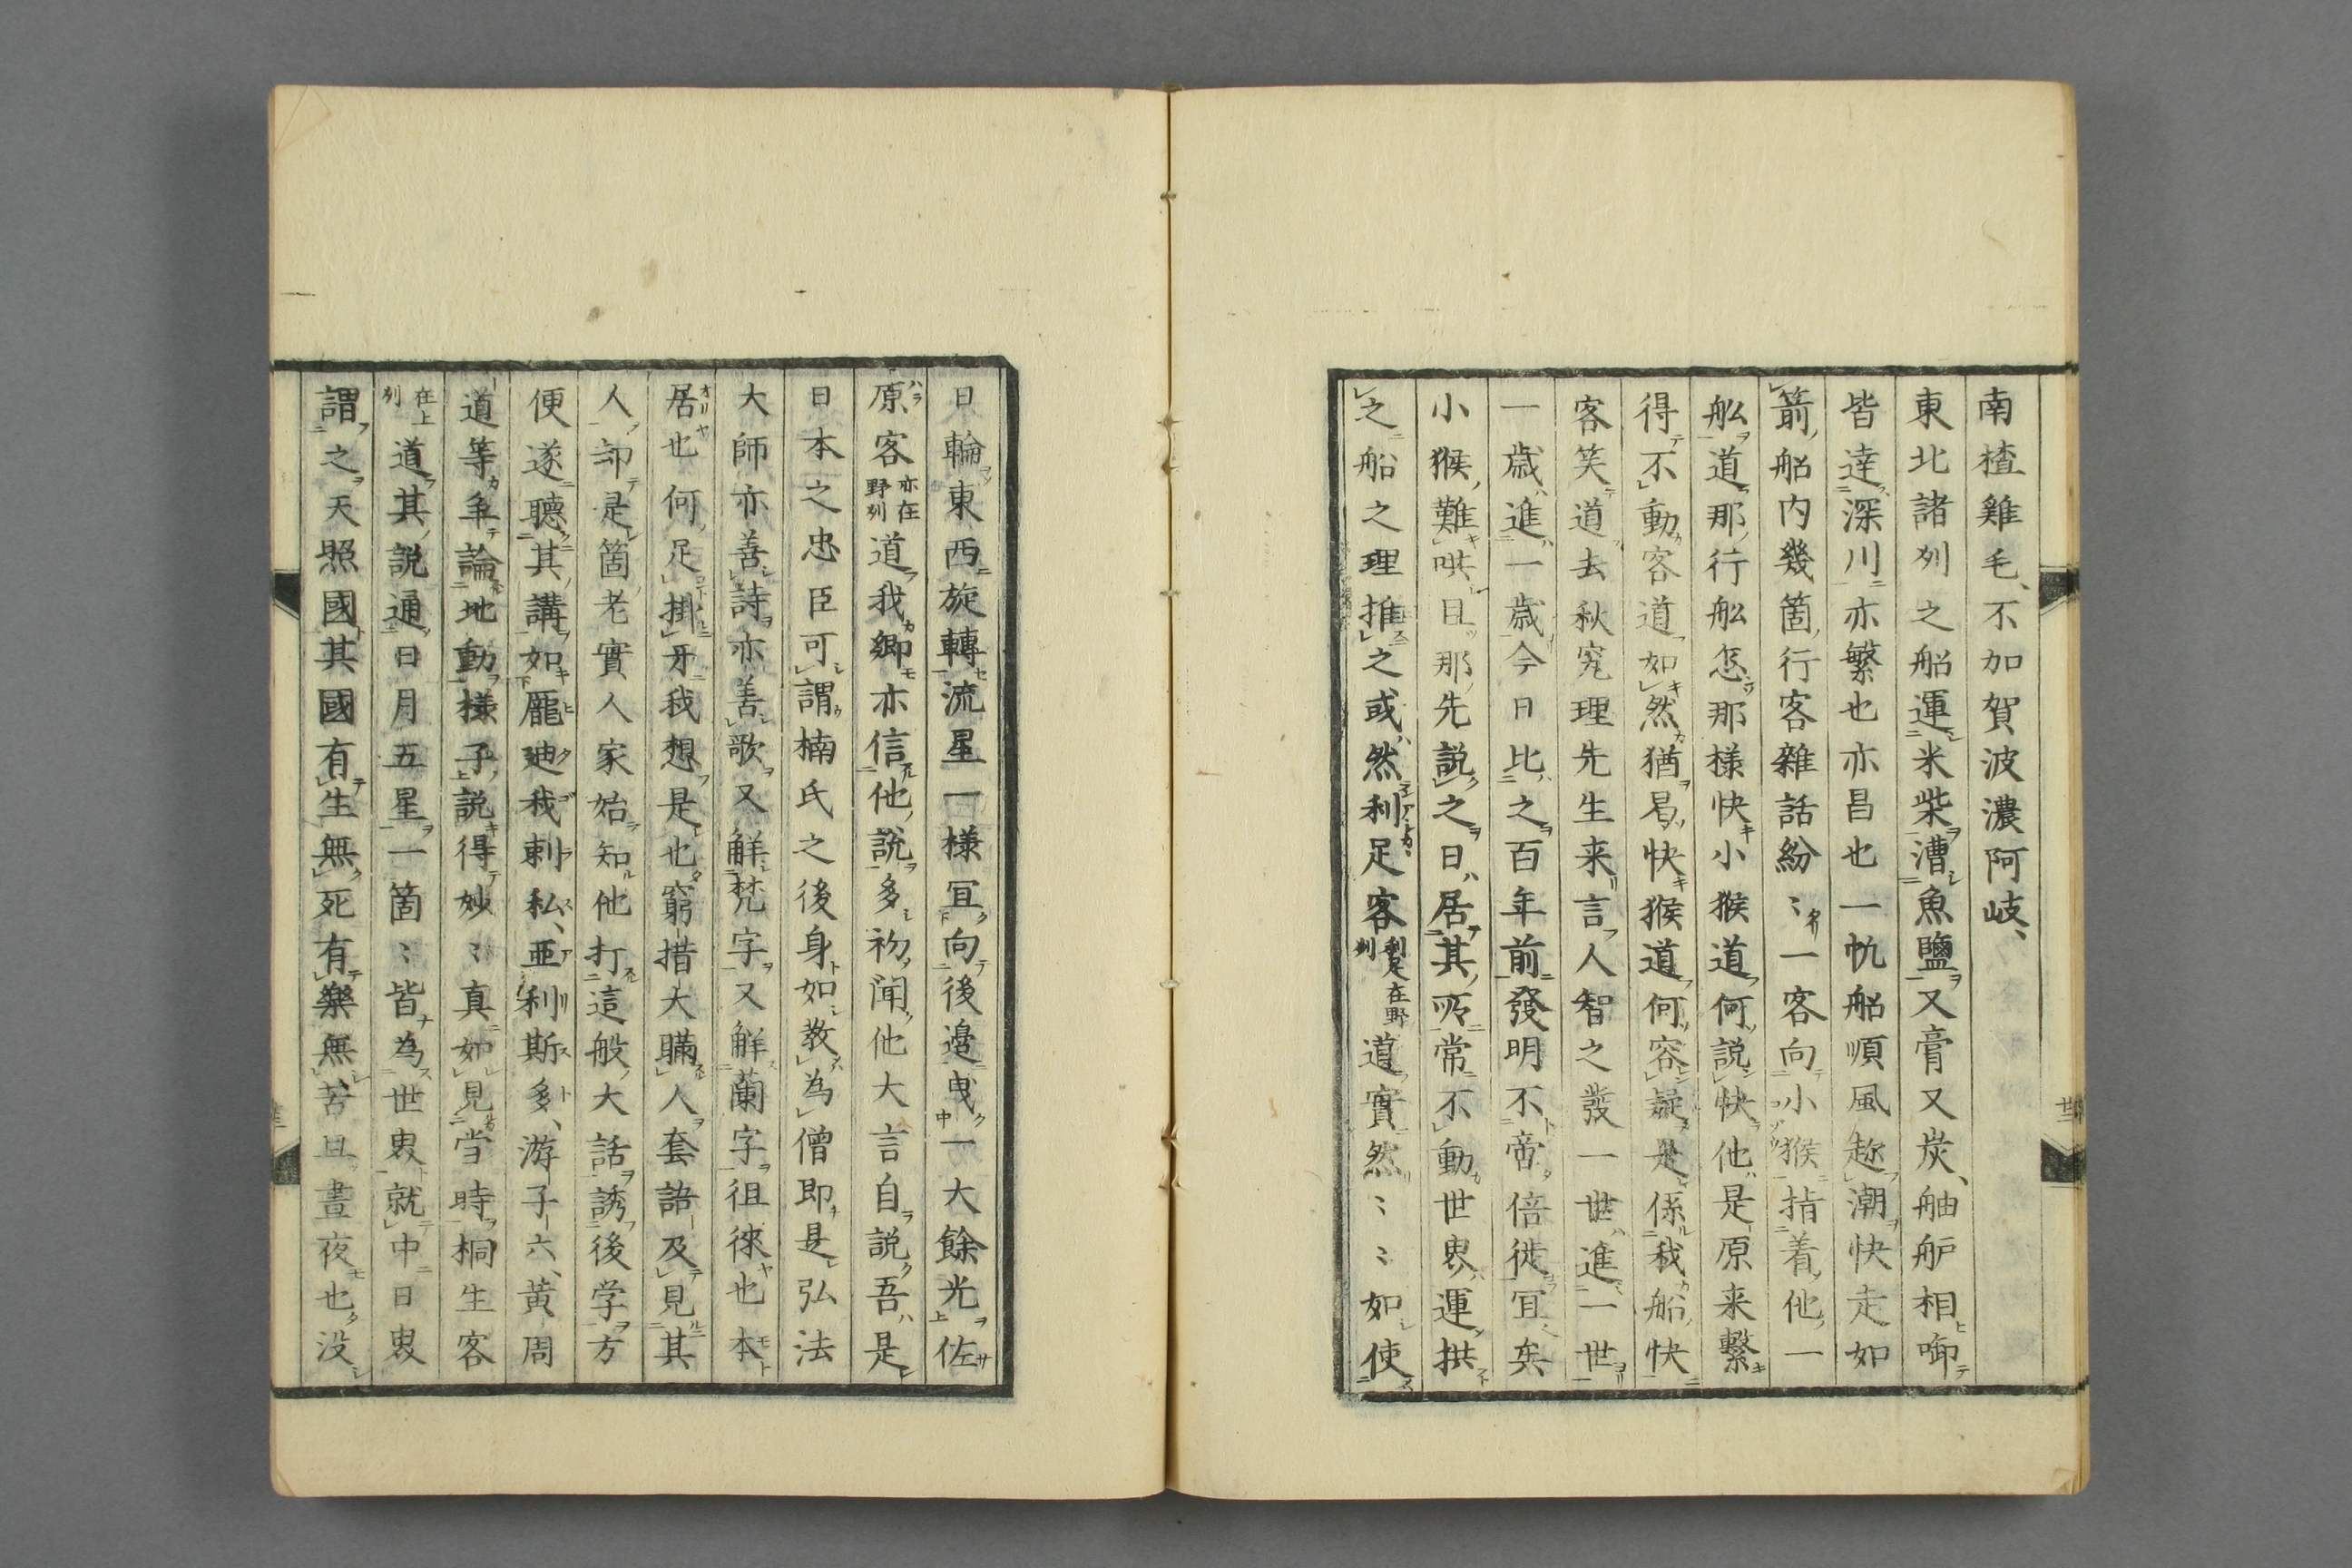 南楂雞毛、不加賀波濃阿岐、
東北諸列之船運米柴漕魚鹽又膏又炭、舳舮相啣
皆達深川亦繁也亦昌也一帆船順風趂潮快走如
箭船内幾箇行客雜話紛〻一客向小猴指着他一
舩道那行舩怎那樣快小猴道何説快他是原来繫
得不動客道如然猶易快猴道何容疑是係我船快
客笑道去秋究理先生来言人智之發一世進一世
一歳進一歳今日比之百年前發明不啻倍徙冝矣
小猴難哄且那先説之日居其所常不動世界運拱
之船之理推之或然利足客利足在野列道實然〻〻如使
日輪東西旋轉流星一様冝向後邉曳一大餘光佐
原客亦在野列道我郷亦信他説多初聞他大言自説吾是
日本之忠臣可謂楠氏之後身如教為僧即是弘法
大師亦善詩亦善歌又解梵字又解蘭字徂徠也本
居也何足掛牙我想是也窮措大瞞人套語及見其
人却是箇老實人家始知他打這般大話誘後学方
便遂聽其講如龎廸我剌私、亜利斯多、游子六、黄周
道等争論地動様子説得妙〻真如見当時桐生客
在上列道其説通日月五星一箇〻皆為世界就中日界
謂之天照國其國有生無死有樂無苦且晝夜也没